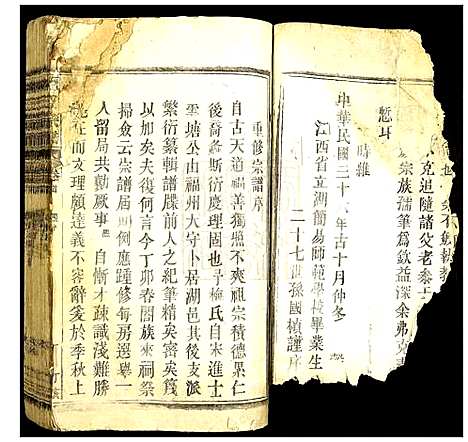 克追隨諸父老黍士
宗族孺筆為欽益深余弗克
愆耳
時維
中華民國二十 年古十月仲冬
江西省立湖簡易師範學校畢業生
二十七世孫國楨謹序
重修宗譜序
自古天道福善獨獨不爽祖宗積德累仁
後裔斯衍慶理固也予梅氏自宋進士
雲塘公由福州大守卜居湖邑其後支派
繁衍纂輯譜牒前人之紀筆精矣密矣篾
以加矣夫復何言今丁卯春闔族來祠祭
掃僉云宗譜屆期例應踵修每房選舉一
人留局共勷厥事 自慚才疎識淺難勝
在而文理頗達義不容辭爰於季秋上